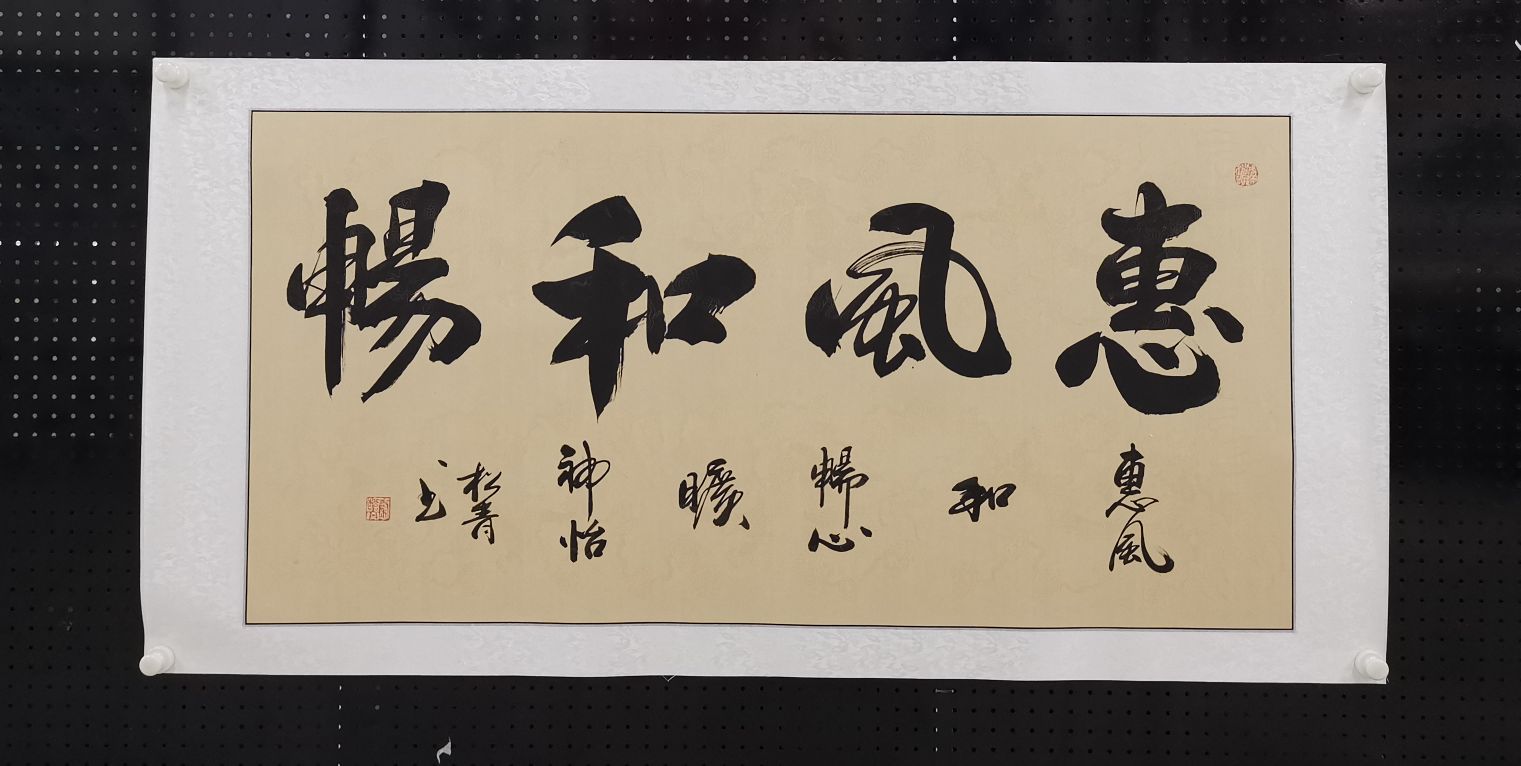 惠風和暢
惠風
和
暢心
曠
神怡
松青
书